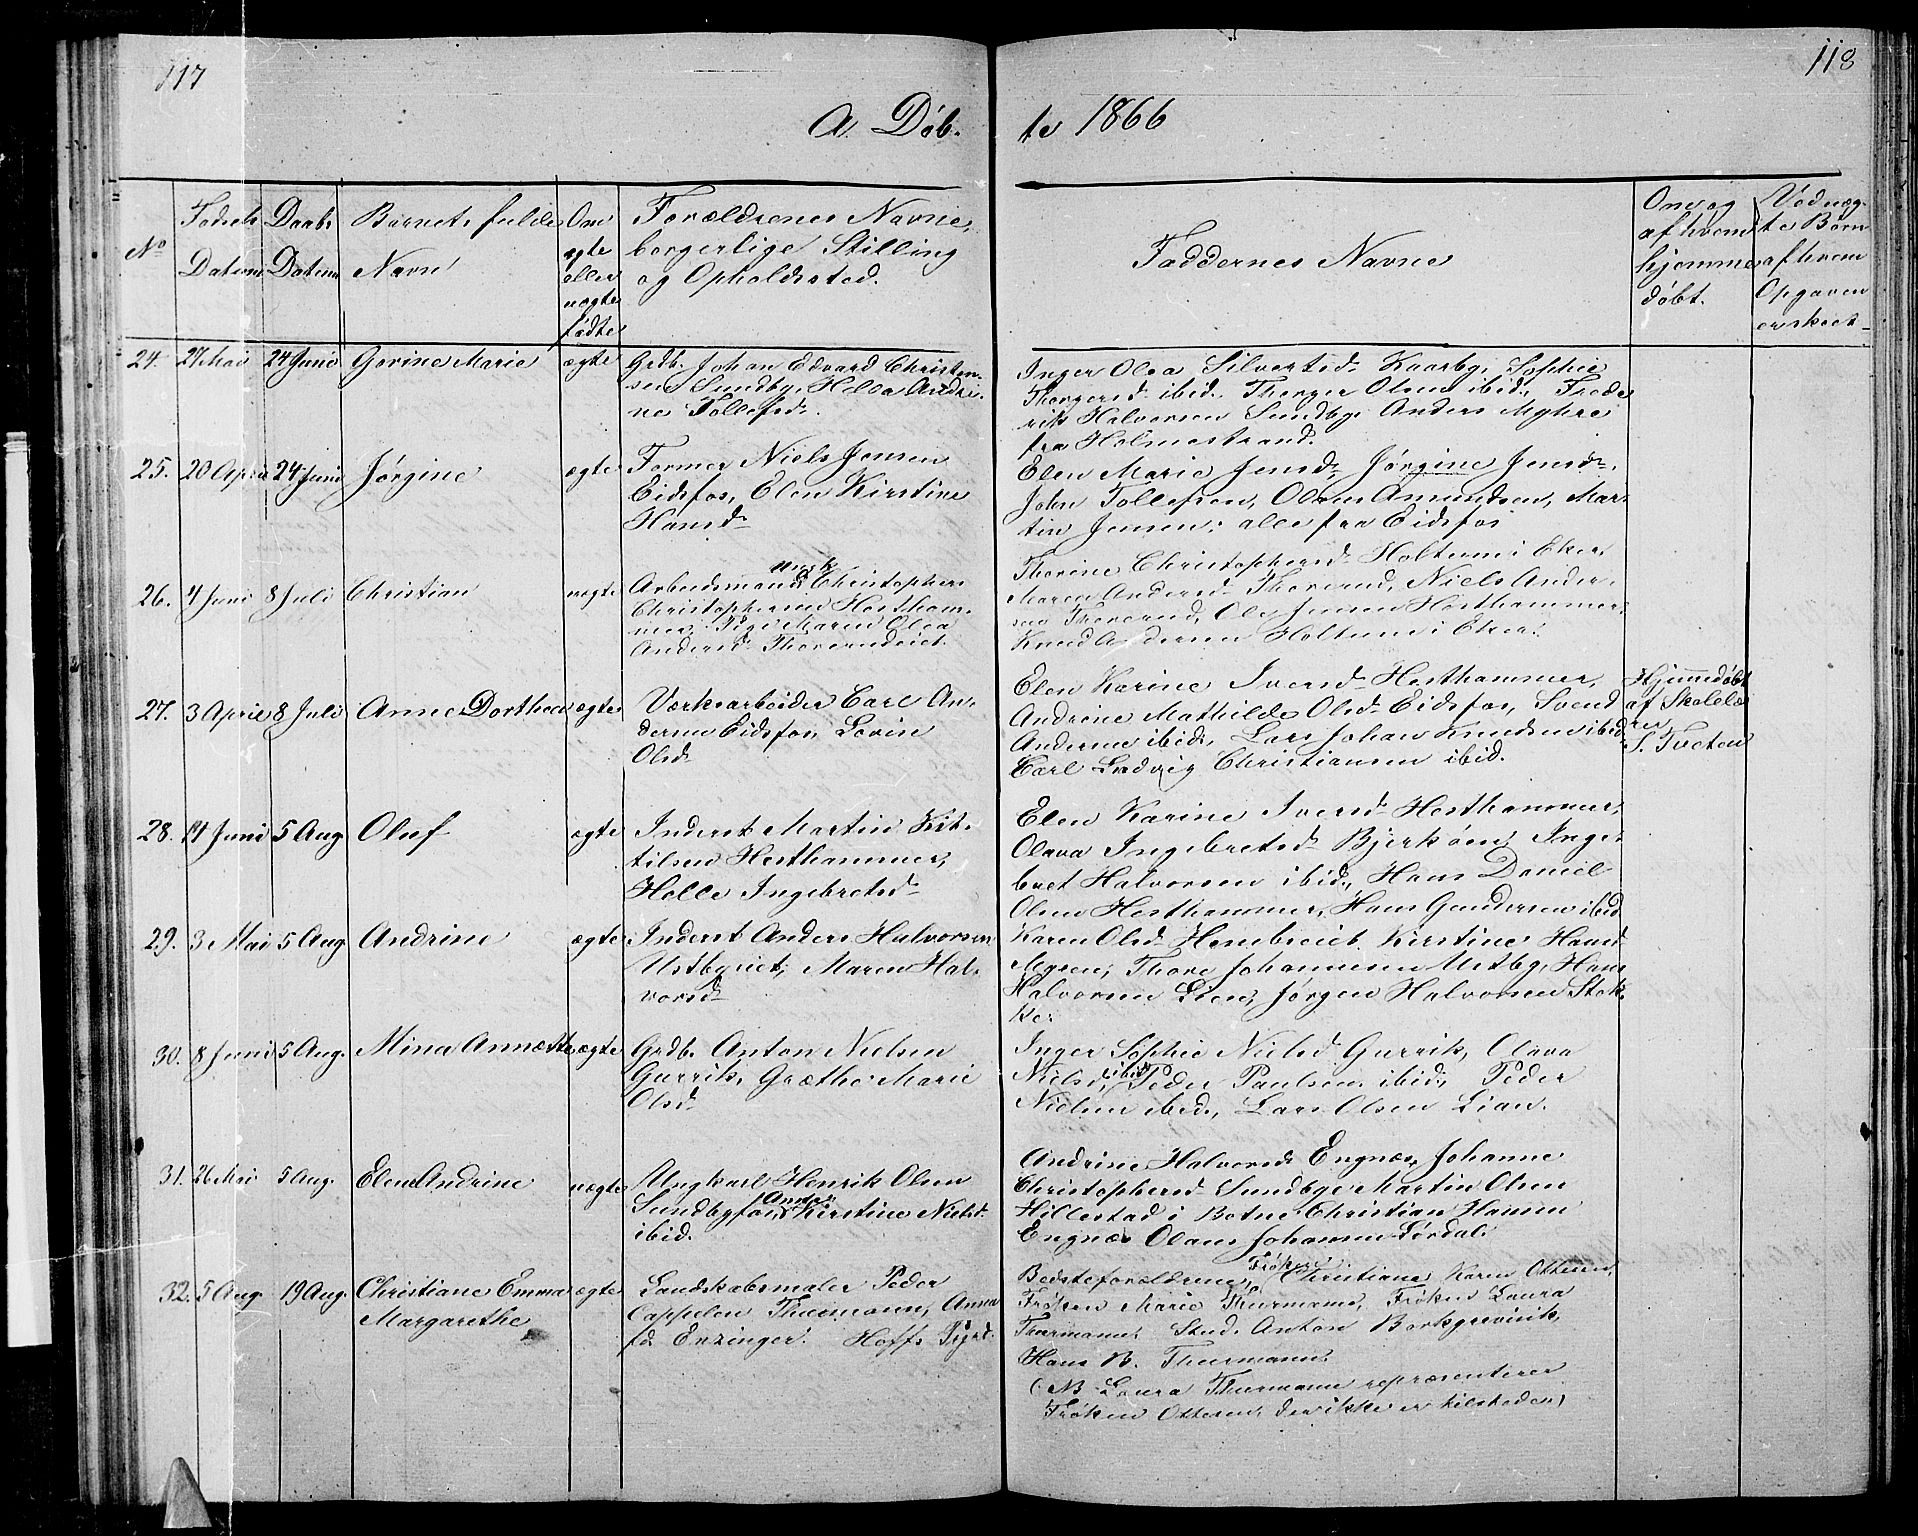 117
118
A. Døb-
te 1866
No
Fødsels
Datum
Daabs
Datum
Barnets fulde
Navn
Om
ægte
eller
uægte
fødte
Forældrenes Navne,
borgerlige Stilling
og Opholdssted.
Faddernes Navne
Om og
af hvem
hjemme
døbt.
Dødfødte Børn
af hvem
Opgaven
er skeet
24. 27 Mai 24 Juni Gerine Marie ægte
Grdb. Johan Edvard Christen-
sen Sundby, Helle Andri-
ne Tollefsd.
Inger Olea Silvertsd. Kaarby, Sophie
Thorgersd. ibid., Thorger Olsen ibid., Frede
rik Halvorsen Sundby, Anders Myhre
fra Holmestrand.
25. 20 April 24 Juni Jørgine ægte
Former Niels Jensen
Eidsfos, Elen Kirstine
Hansd.
Elen Marie Jensd., Jørgine Jensd.,
John Tollefsen, Olaus Amundsen, Mar-
tin Jensen, alle fra Eidsfos
26. 4 Juni 8 Juli Christian uægte
Arbeidsmand Christopher
Christophersen Hestham-
mer, Pige Maren Olea
Andersd.
Thorine Christophersd. Holtum i Eker,
Maren Andersd. Thorerud, Niels Ander-
sen Thorerud, Ole Jensen Hesthammer,
Knud Andersen Holtum i Eker.
27. 3 April 8 Juli Anne Dorthea ægte
Værksarbeider Carl An-
dersen Eidsfos, Lovise
Olsd.
Elen Karine Iversd. Hesthammer,
Andrine Mathilde Olsd. Eidsfos, Svend
Andersen ibid., Lars Johan Knudsen ibid.
Carl Ludvig Christiansen ibid.
Hjemmedøbt
af Skolelæ
rer
S. Tveten
28. 14 Juni 5 Aug Oluf ægte
Inderst Martin Kit-
tilsen Hesthammer,
Helle Ingebretsd.
Elen Karine Iversd. Hesthammer,
Olava Ingebretsd. Bjerkøen, Inge-
bret Halvorsen ibid., Hans Daniel
Olsen Hesthammer, Hans Gundersen ibid
29. 3 Mai 5 Aug. Andrine ægte
Inderst Anders Halvorsen
Ustbyeiet, Maren Hal-
vorsd.
Karen Olsd. Hembreiet, Kirstine Hansd.
Mysen, Thore Johannesen Ustby, Hans
Halvorsen Lien, Jørgen Halvorsen Stok-
ke.
30. 8 Juni 5 Aug. Mina Annette ægte
Grdb. Anton Nielsen
Gurrik, Græthe Marie
Olsd.
Inger Sophie Nielsd. Gurrik, Olava
Nielsd. ibid, Peder Paulsen ibid., Peder
Nielsen ibid., Lars Olsen Lian.
31. 26 Mai 5 Aug. Elen Andrine uægte
Ungkarl Henrik Olsen
Sundbyfos, Kirstine Nielsd.
ibid.
Andrine Halvorsd. Engnæs, Johanne
Christophersd. Sundby, Martin Olsen
Hillestad i Botne, Christian Hansen
Engnæs, Olaus Johannsen Sørdal.
32. 5 Aug. 19 Aug. Christiane Emma ægte
Margarethe
Landskabsmaler Peder
Cappelen Thurmann, Anna
fd. Enzinger. Hoffs Prgd.
Bedsteforældrene, Frøken Christiane Karen Ottesen,
Frøken Marie Thurmann, Frøken Laura
Thurmann, Stud. Anton Borkgrevink,
Hans B. Thurmann.
(NB Laura Thurmann repræsenterer
Frøken Ottesen, der ikke er tilstede.)